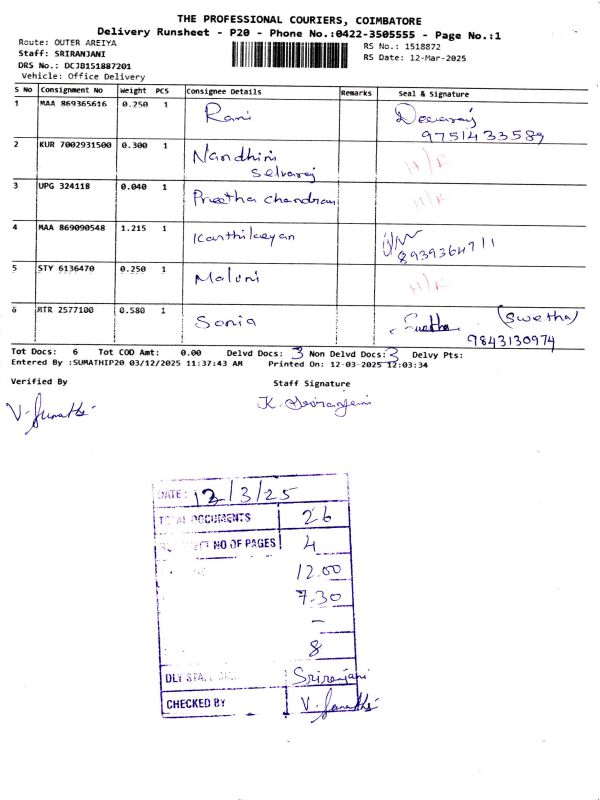 THE PROFESSIONAL COURIERS, COIMBATORE
Delivery Runsheet - P20 - Phone No.:0422-3505555 - Page No.:1
Route: OUTER AREIYA
RS No.: 1518872
Staff: SRIRANJANI
RS Date: 12-Mar-2025
DRS No.: DCJB151887201
Vehicle: Office Delivery
S No Consignment No Weight PCS Consignee Details Remarks Seal & Signature
1 MAA 869365616 0.250 1 Rani Devaraj
9751433589
2 KUR 7002931500 0.300 1 Nandhini H/R
Selvaraj
3 UPG 324118 0.040 1 Preetha chandran H/R
4 MAA 869090548 1.215 1 Karthikeyan
8939364711
5 STY 6136470 0.250 1 Malini H/R
6 MTR 2577100 0.580 1 Sonia Swetha (Swetha)
9843130974
Tot Docs: 6 Tot COD Amt: 0.00 Delvd Docs: 3 Non Delvd Docs: 3 Delvy Pts:
Entered By :SUMATHIP20 03/12/2025 11:37:43 AM Printed On: 12-03-2025 12:03:34
Verified By Staff Signature
V. Sumathi K. Sriranjani
DATE: 12/3/25
TOTAL DOCUMENTS 26
NO OF PAGES 4
12.00
7.30
-
8
DLY STAFF Sriranjani
CHECKED BY V. Sumathi